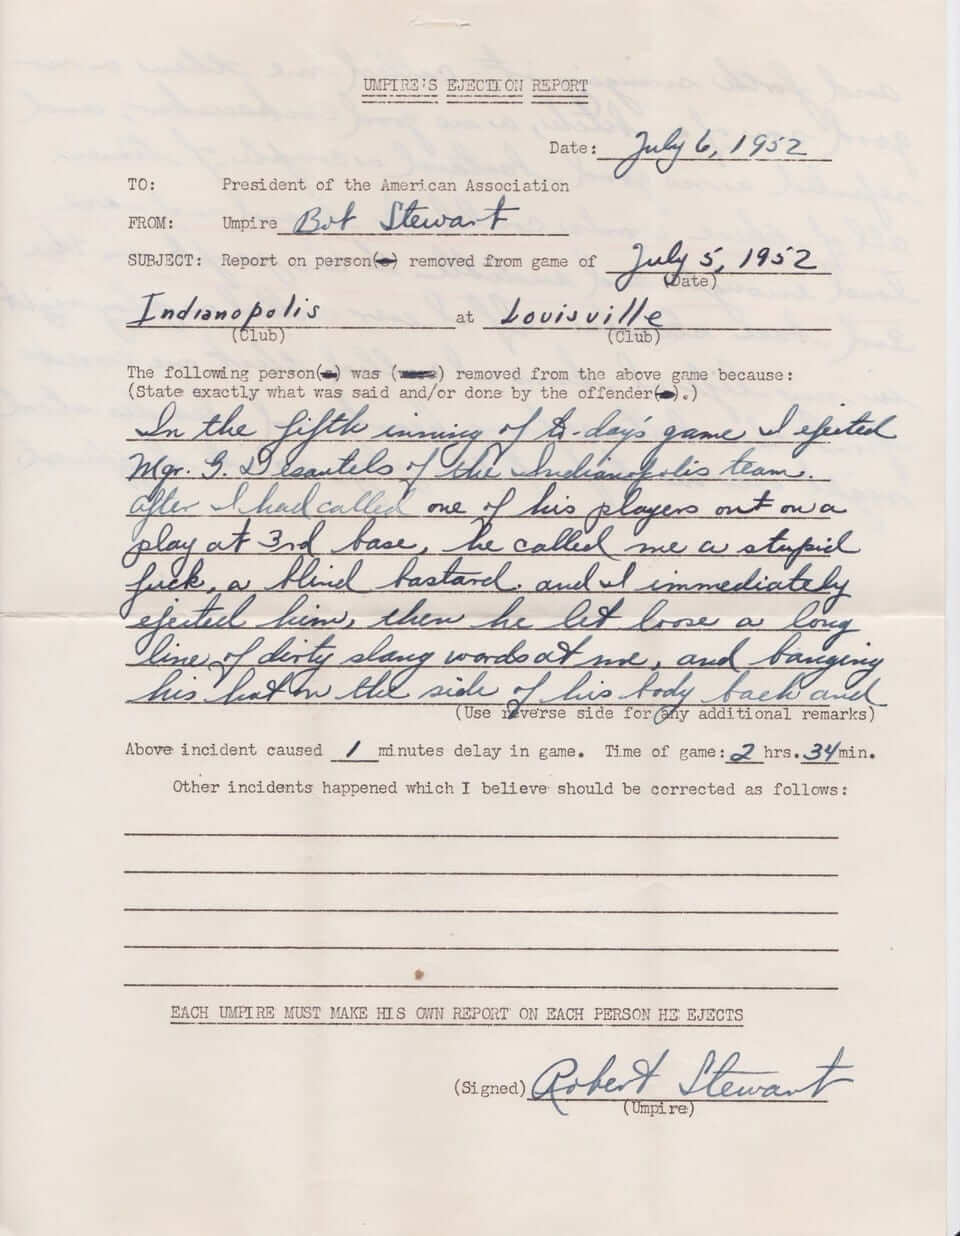 UMPIRE'S EJECTION REPORT
Date: July 6, 1952
TO: President of the American Association
FROM: Umpire Bob Stewart
SUBJECT: Report on person( ) removed from game of July 5, 1952
(Date)
Indianapolis at Louisville
(Club) (Club)
The following person( ) was ( ) removed from the above game because:
(State exactly what was said and/or done by the offender( ).)
In the fifth inning of to-day's game I ejected
Mgr. G. Desautels of the Indianapolis team.
After I had called one of his players out on a
play at 3rd base, he called me a stupid
fuck, a blind bastard. and I immediately
ejected him, then he let loose a long
line of dirty slang words at me, and banging
his hat on the side of his body back and
(Use reverse side for any additional remarks)
Above incident caused 1 minutes delay in game. Time of game: 2 hrs. 34 min.
Other incidents happened which I believe should be corrected as follows:
EACH UMPIRE MUST MAKE HIS OWN REPORT ON EACH PERSON HE EJECTS
(Signed) Robert Stewart
(Umpire)